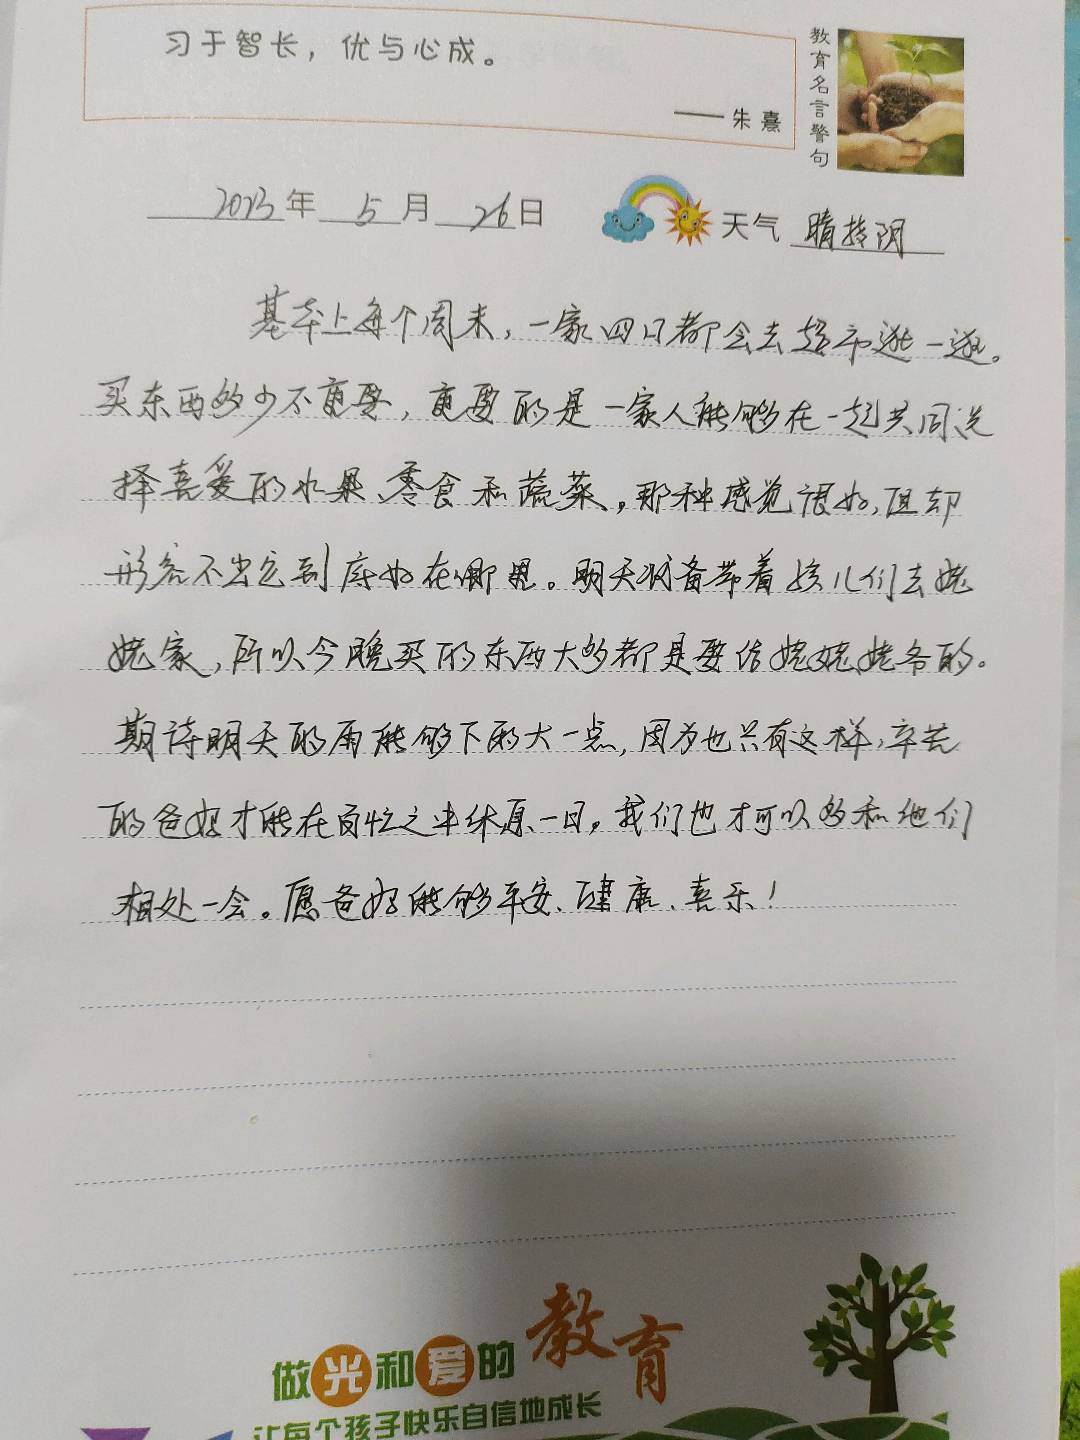 习于智长，优与心成。
——朱熹
教育名言警句
2023年 5月 26日
天气 晴转阴
基本上每个周末，一家四口都会去超市逛一逛。
买东西多少不重要，重要的是一家人能够在一起共同选
择喜爱的水果、零食和蔬菜。那种感觉很好，但却
形容不出它到底好在哪里。明天准备带着孩儿们去姥
姥家，所以今晚买的东西大多都是要给姥姥姥爷的。
期待明天的雨能够下的大一点，因为也只有这样，辛苦
的爸妈才能在百忙之中休息一日。我们也才可以多和他们
相处一会。愿爸妈能够平安、健康、喜乐！
做光和爱的教育
让每个孩子快乐自信地成长